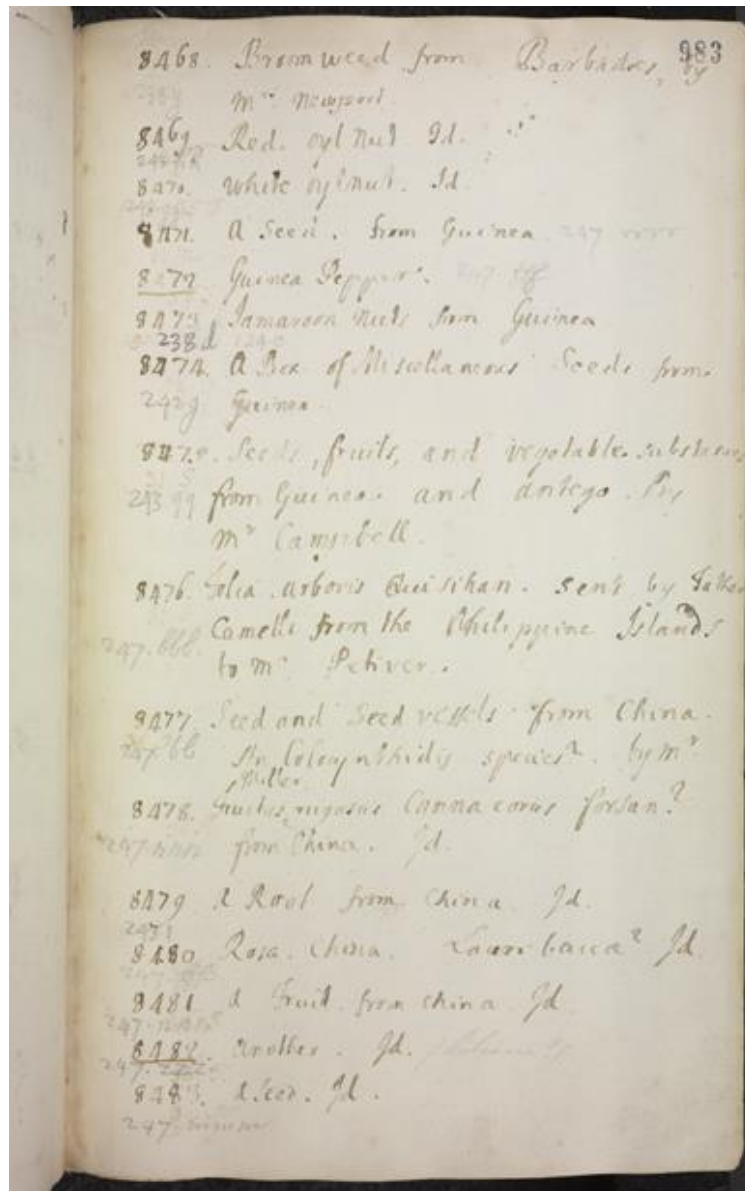 983
8468. Broom weed from Barbados, by
Mr. Newport.
8469 Red. oyl nut Id.
8470. white oylnut. Id.
8471. A Seed. from Guinea 247
8472 Guinea Pepper.
8473 Jamaroon nuts from Guinea
238 d
8474. A Box of Miscellaneous Seeds from
Guinea
8475. Seeds, fruits, and vegetable substances
from Guinea and antego. By
Mr Campbell.
8476. folia arboris Quisihan. sent by Father
247. bbb. Camelli from the Philippine Islands
to Mr Petiver.
8477. Seed and Seed vessels from China.
247 bb An Colocynthidis species? by Mr
Miller
8478. fructus rugosus Cannacorus forsan?
from China. Id.
8479 A Root from China Id.
8480 Rosa. China. Lauri bacca? Id.
8481 A Fruit from China Id
8482. another. Id.
8483. A Seed. Id.
247